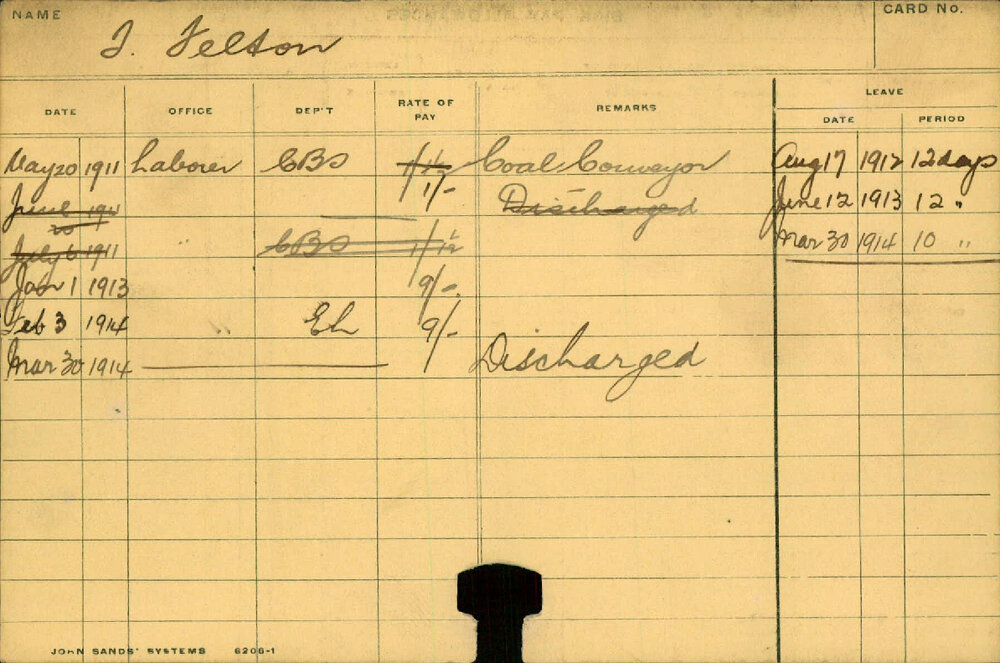 NAME
CARD No.
J. Felton
DATE OFFICE DEP'T RATE OF PAY REMARKS LEAVE
DATE PERIOD
May 20 1911 Laborer CBS 1/1½ 1/- Coal Conveyor Aug 17 1912 12 days
June 20 1911 Discharged June 12 1913 12 "
July 6 1911 CBS 1/1½ Mar 30 1914 10 "
Jan 1 1913 9/-
Feb 3 1914 " EL 9/-
Mar 30 1914 Discharged
JOHN SANDS' SYSTEMS 6206-1